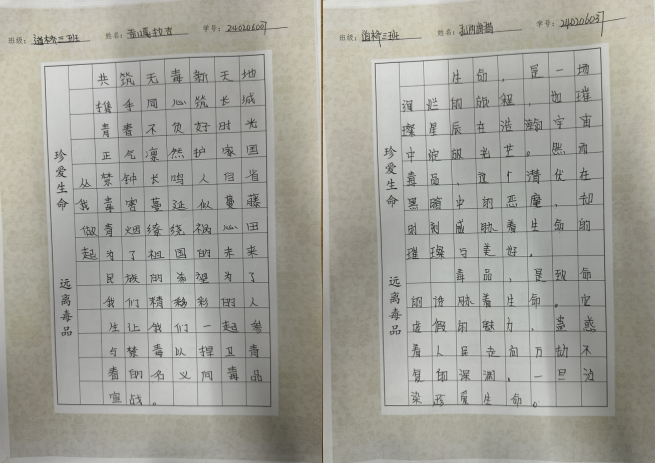 班级：道桥三班 姓名： 学号：24020600
珍爱生命 远离毒品
共筑无毒新天地
携手同心筑长城
青春不负好时光
正气凛然护家国
禁钟长鸣人自省
毒害蔓延似蔓藤
青烟缭绕祸心田
为了祖国的未来
民族的希望为了
我们精彩的人
生让我们一起参
与禁毒以捍卫青
春的名义向毒品
宣战。
从
我
做
起
班级：道桥三班 姓名： 学号：24020603
珍爱生命 远离毒品
生命，是一场
绚烂的旅程，如璀
璨星辰在浩瀚宇宙
中绽放光芒。然而
毒品，这个潜伏在
黑暗中的恶魔，却
时刻威胁着生命的
璀璨与美好。
毒品，是致命
的诱 着生命。它
虚假的魅力，蛊惑
着人民走向万劫不
复的深渊，一旦沾
染 爱生命。